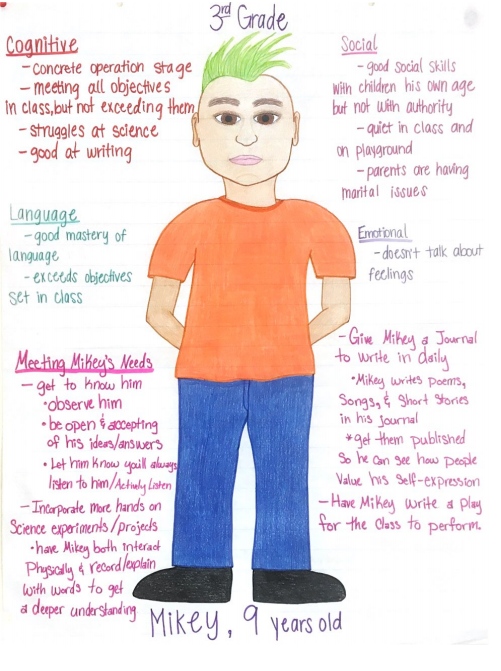 3rd Grade
Cognitive
- concrete operation stage
- meeting all objectives
in class, but not exceeding them
- struggles at science
- good at writing
Social
- good social skills
with children his own age
but not with authority
- quiet in class and
on playground
- parents are having
marital issues
Language
- good mastery of
language
- exceeds objectives
set in class
Emotional
- doesn't talk about
feelings
Meeting Mikey's Needs
- get to know him
• observe him
• be open & accepting
of his ideas/answers
• Let him know you'll always
listen to him/Actively Listen
- Incorporate more hands on
Science experiments/projects
• have Mikey both interact
Physically & record/explain
with words to get
a deeper understanding
- Give Mikey a Journal
to write in daily
• Mikey writes poems,
Songs, & Short Stories
in his Journal
* get them published
So he can see how people
Value his Self-expression
- Have Mikey write a play
for the Class to perform.
Mikey, 9 years old